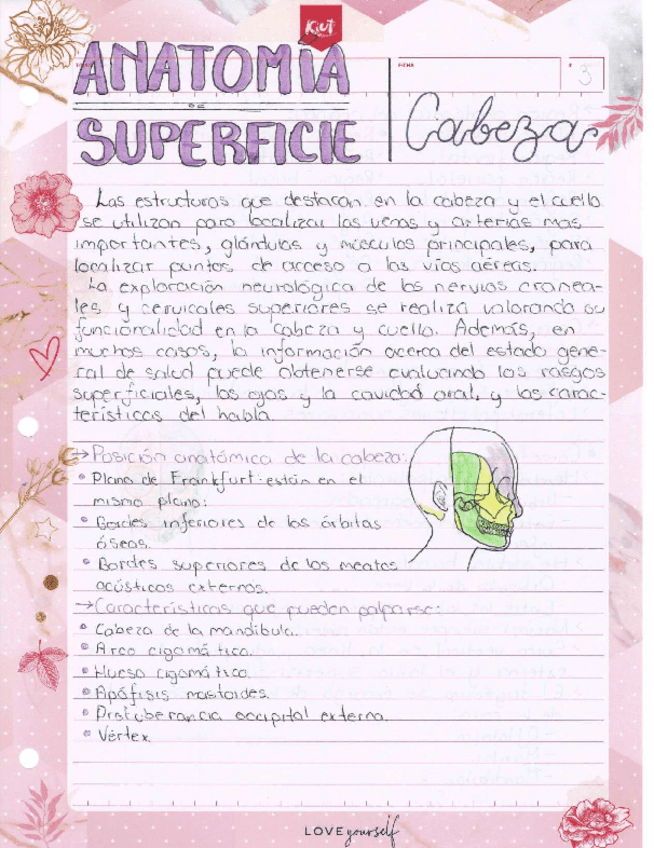 Kiut
ANATOMÍA
DE
SUPERFICIE
FECHA
3
Cabeza
Las estructuras que destacan en la cabeza y el cuello
se utilizan para localizar las venas y arterias mas
importantes, glándulas y músculos principales, para
localizar puntos de acceso a las vías aéreas.
La exploración neurológica de los nervios cranea-
les y cervicales superiores se realiza valorando su
funcionalidad en la cabeza y cuello. Además, en
muchos casos, la información acerca del estado gene-
ral de salud puede obtenerse evaluando los rasgos
superficiales, los ojos y la cavidad oral, y las carac-
terísticas del habla.
→Posición anatómica de la cabeza:
• Plano de Frankfurt: están en el
mismo plano:
• Bordes inferiores de las órbitas
óseas.
• Bordes superiores de los meatos
acústicos externos.
→Características que pueden palparse:
• Cabeza de la mandíbula.
• Arco cigomático.
• Hueso cigomático.
• Apófisis mastoides.
• Protuberancia occipital externa.
• Vértex.
LOVE yourself